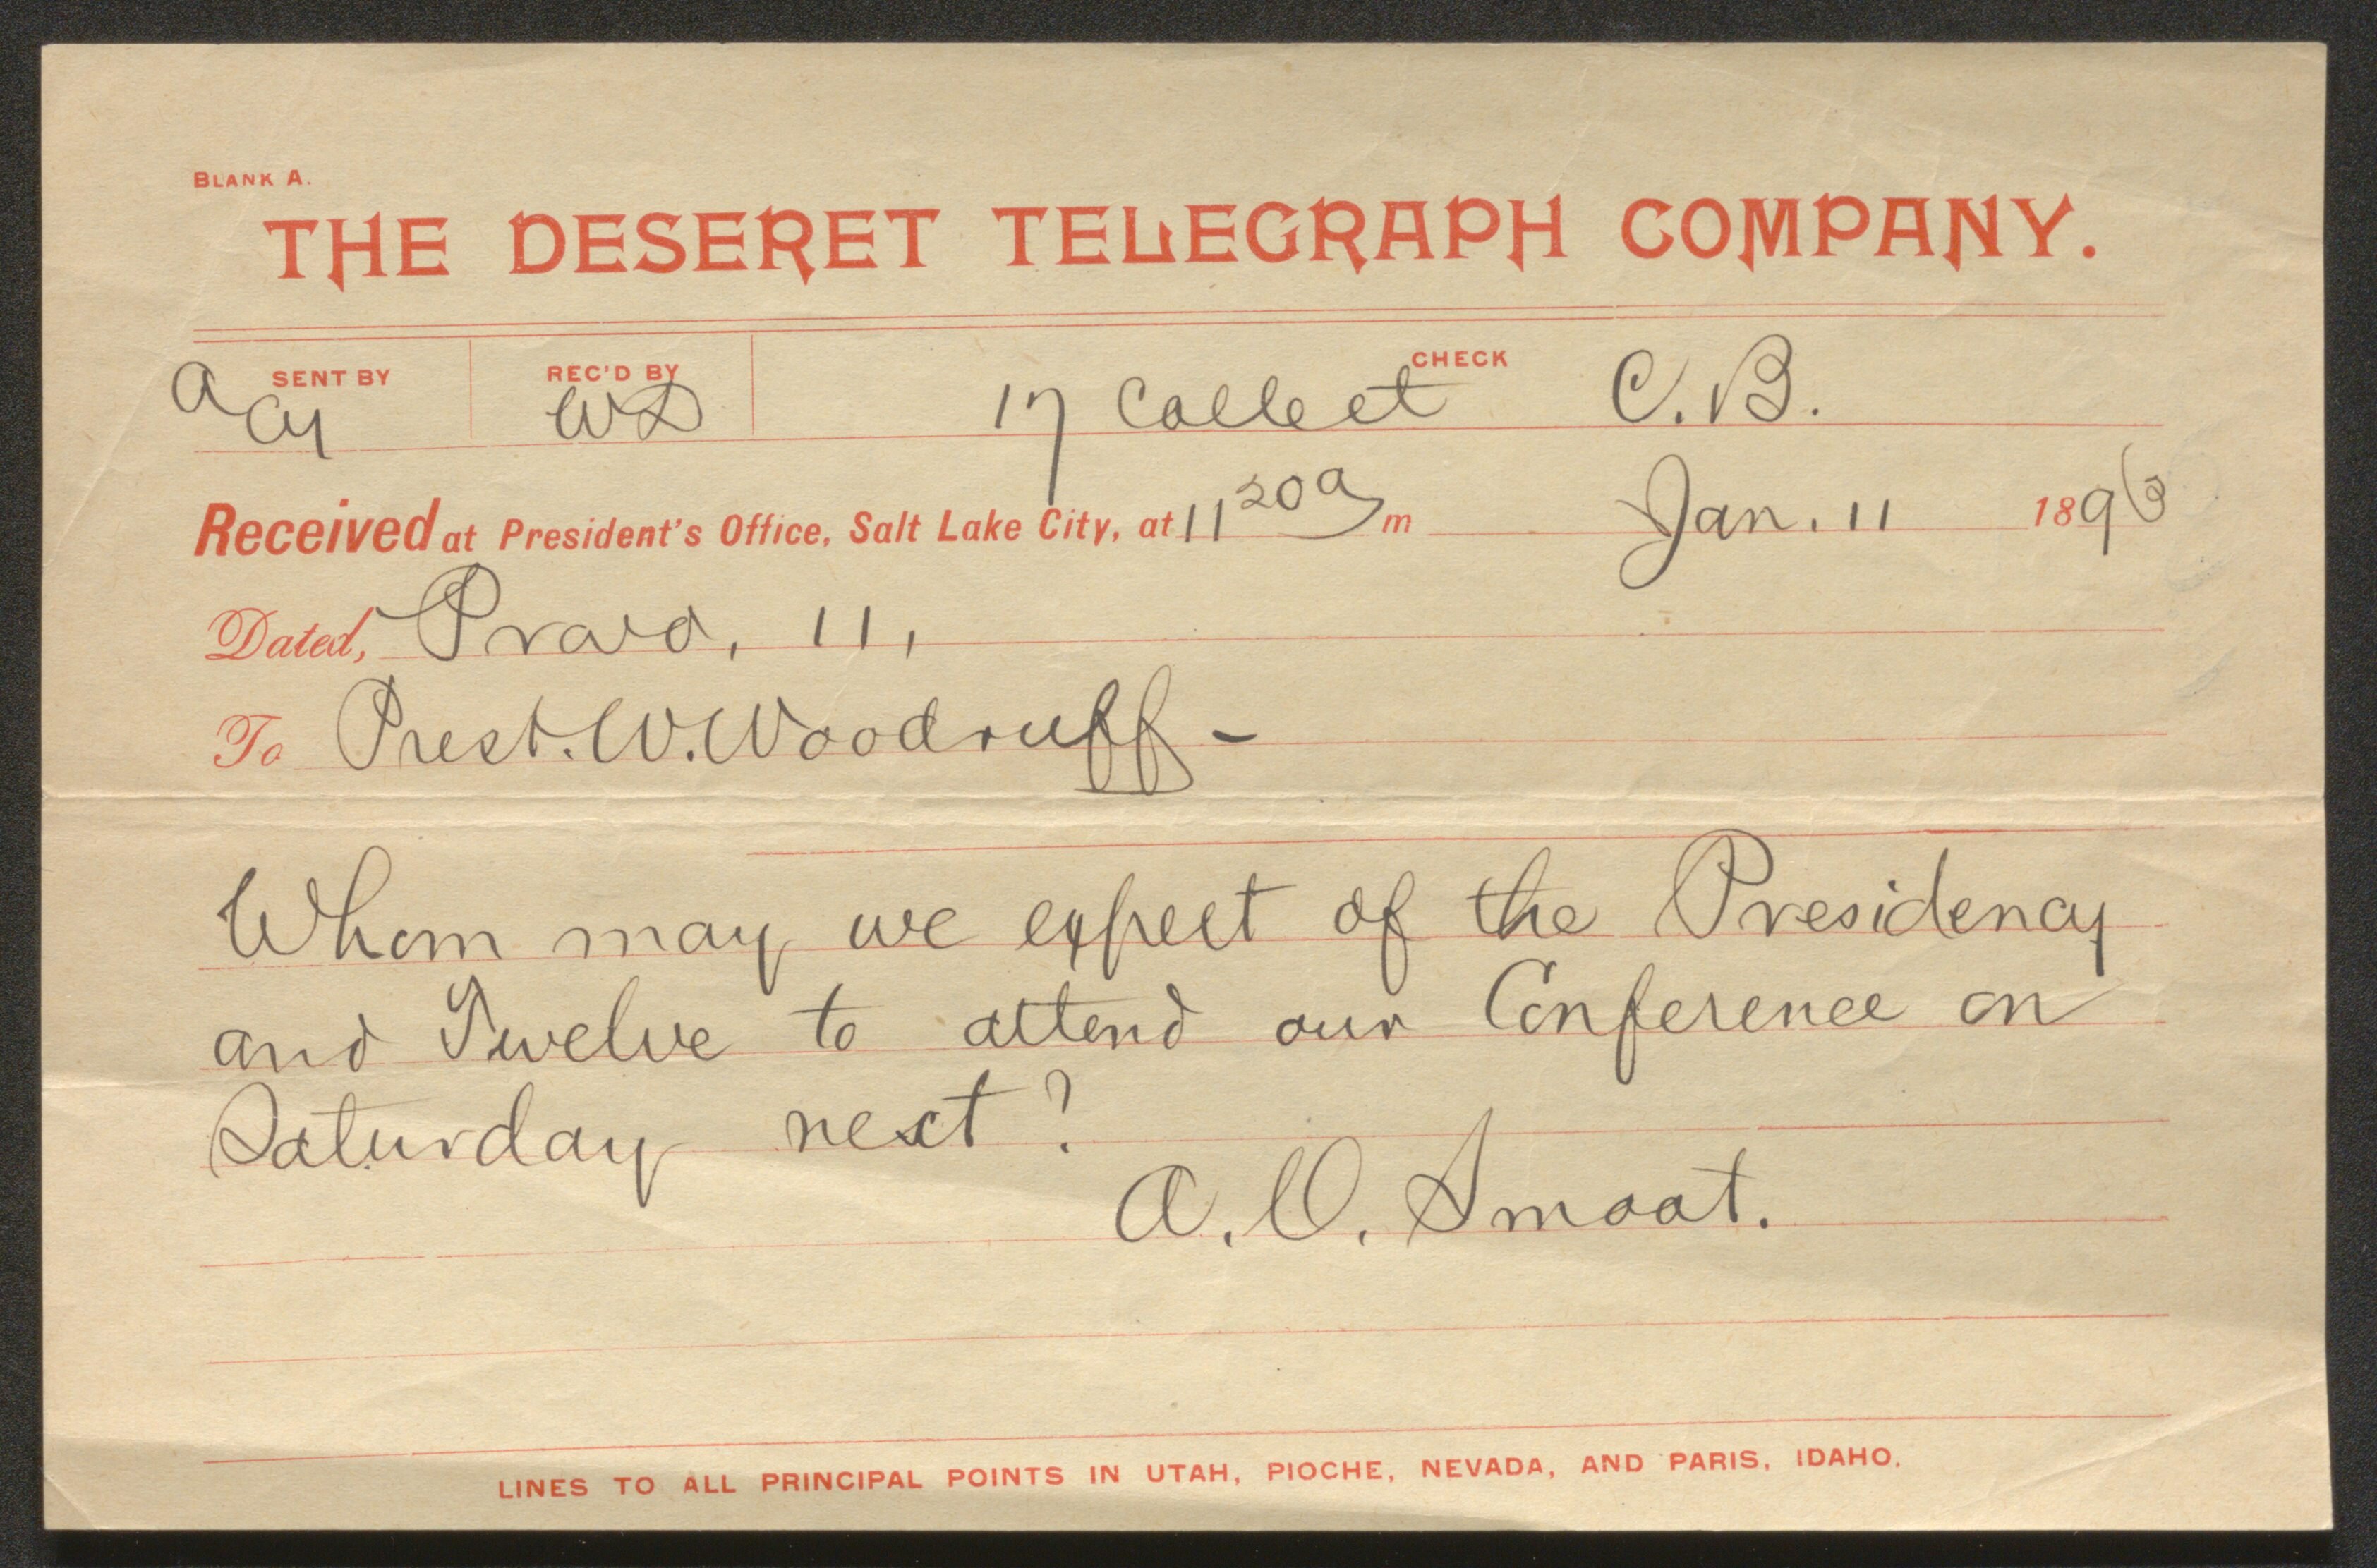 BLANK A.
THE DESERET TELEGRAPH COMPANY.
SENT BY REC'D BY CHECK
a ay WD 17 Collect C.B.
Received at President's Office, Salt Lake City, at 11 20 a m Jan. 11 1896
Dated, Provo, 11,
To Prest. W. Woodruff -
Whom may we expect of the Presidency
and Twelve to attend our Conference on
Saturday next?
A. O. Smoot.
LINES TO ALL PRINCIPAL POINTS IN UTAH, PIOCHE, NEVADA, AND PARIS, IDAHO.